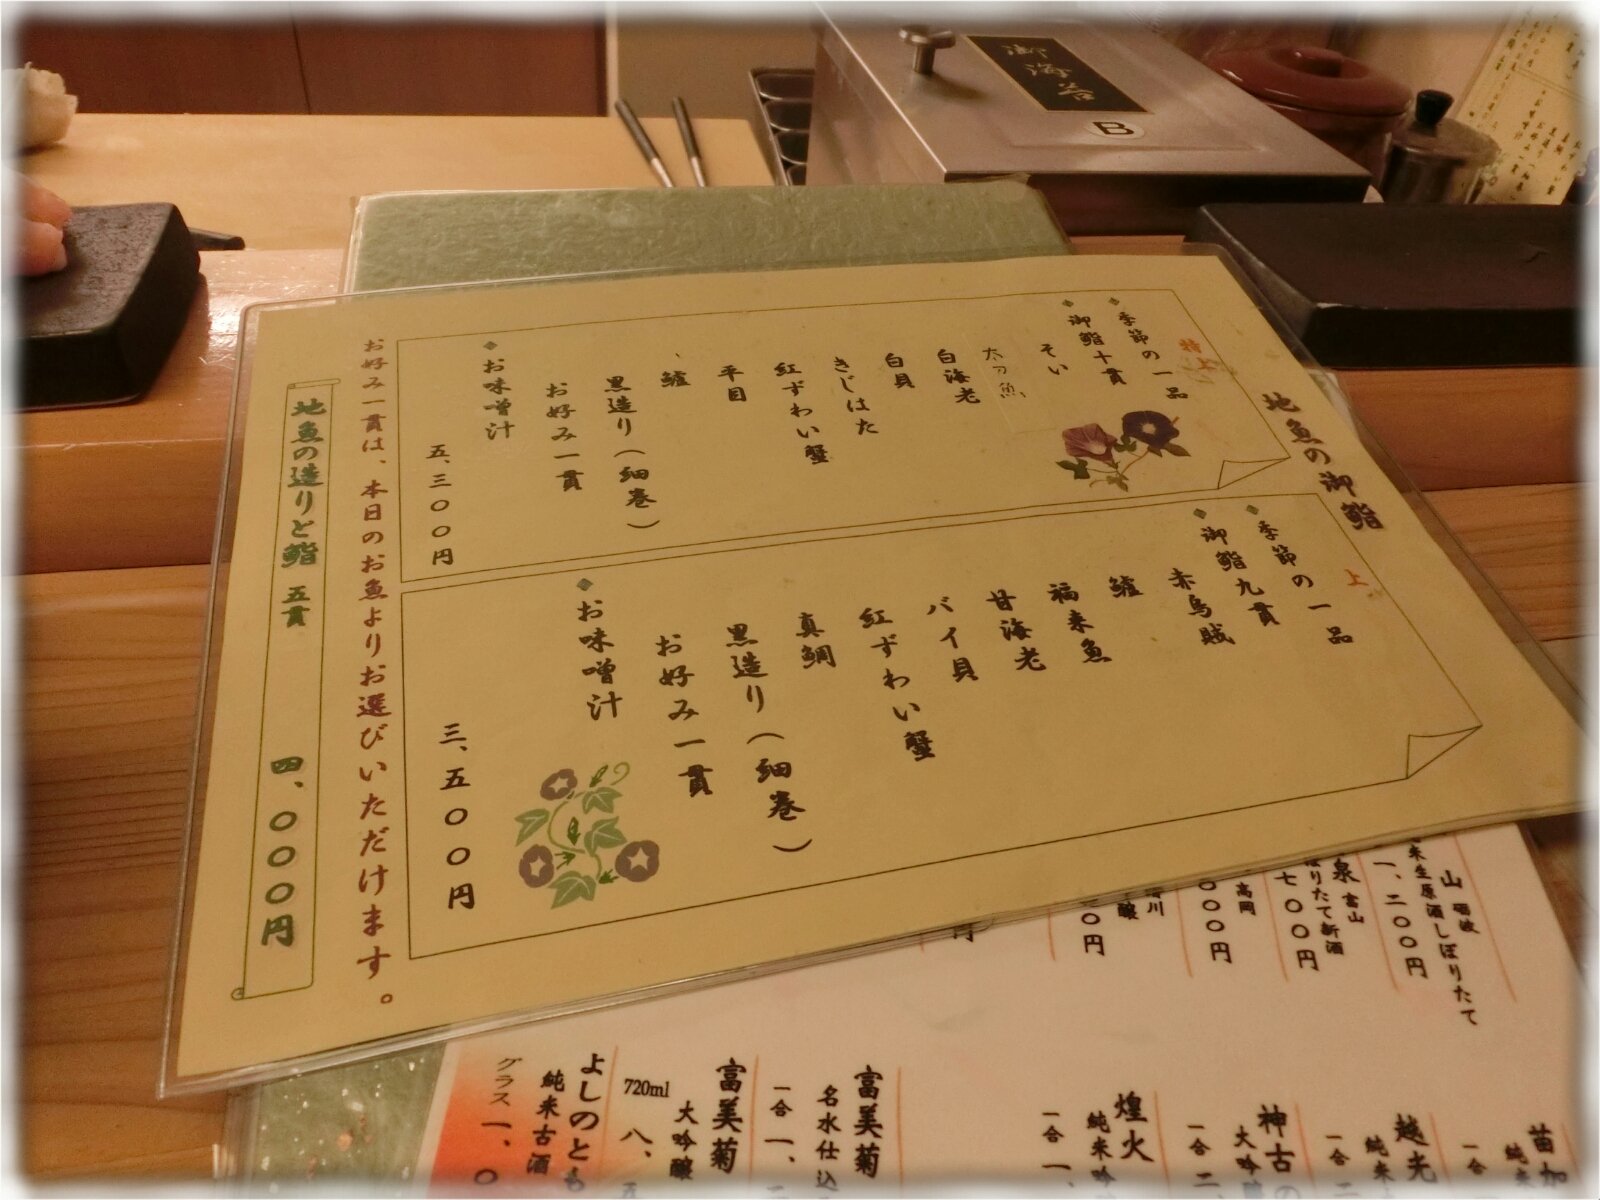 御海苔
B
地魚の御鮨
特上
季節の一品
御鮨十貫
そい
太刀魚
白海老
白貝
きじはた
紅ずわい蟹
平目
鱸
黒造り（細巻）
お好み一貫
お味噌汁
五、三〇〇円
上
季節の一品
御鮨九貫
赤烏賊
鱸
福来魚
甘海老
バイ貝
紅ずわい蟹
真鯛
黒造り（細巻）
お好み一貫
お味噌汁
三、五〇〇円
お好み一貫は、本日のお魚よりお選びいただけます。
地魚の造りと鮨 五貫 四、〇〇〇円
山
米生原酒しぼりたて
一、二〇〇円
泉 富山
ぼりたて新酒
七〇〇円
高岡
〇〇〇円
川
醸
〇〇円
円
苗加
純米
一合
越光
純米
一合 二、
神古の
大吟
一合 二、
煌火
純米吟
一合 一、
富美菊
名水仕込
一合 一、
富美菊
大吟醸
720ml 八、五
よしのとも
純米古酒
グラス 一、〇